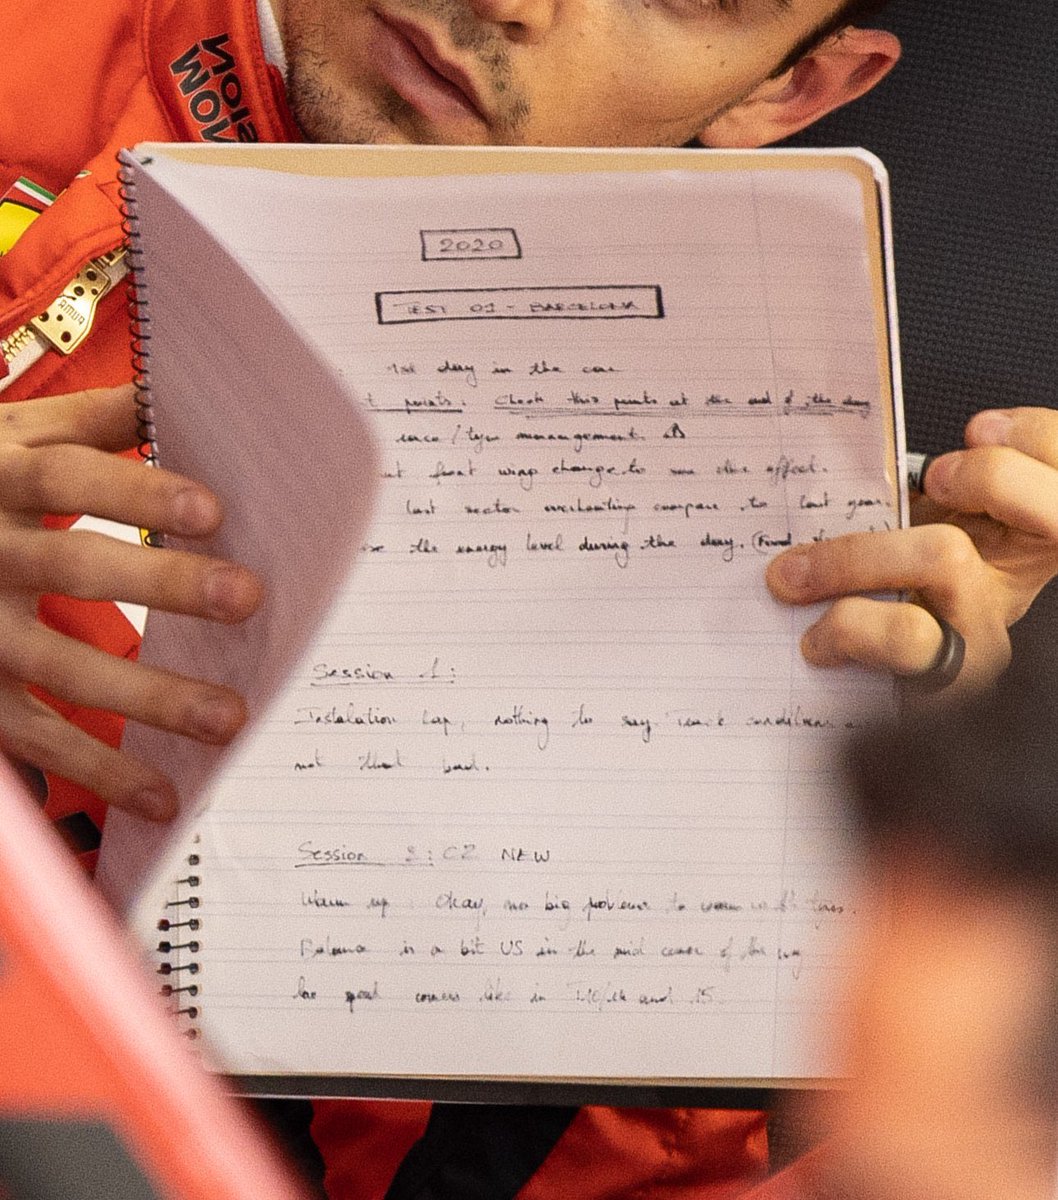 MISSION
WINNOW
PUMA
2020
TEST 01 - BARCELONA
1st day in the car
points. Check this points at the end of the day
/tyre management.
front wing change to see the effect.
last sector overheating compare to last year.
the energy level during the day. (Food
Session 1:
Instalation Lap, nothing to say. Track conditions
not that bad.
Session 2: C2 NEW
Warm up : Okay, no big problems to warm tyres.
Balance is a bit US in the mid corner of the
corners like in and 15.